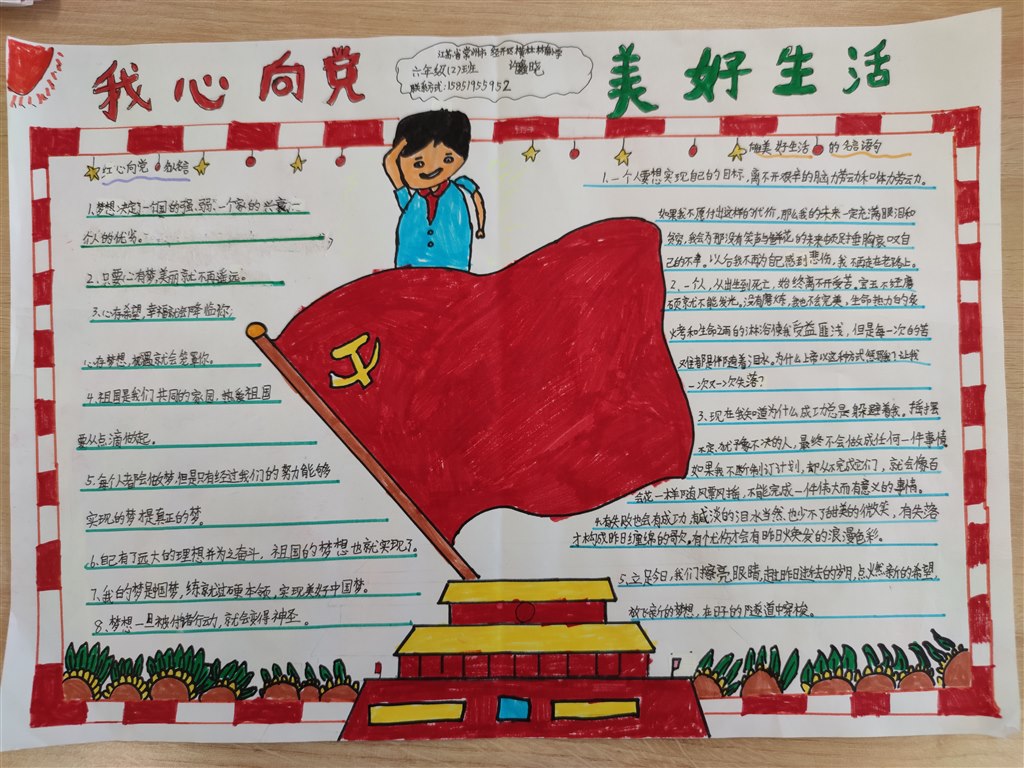 我心向党
江苏省常州市 经开区横林 小学
六年级(2)班
晓
联系方式:15851955952
美好生活
红心向党
1.梦想决定一个国的强、弱;一个家的兴衰;一
个人的优劣。
2.只要心有梦,美丽就不再遥远。
3.心存希望,幸福就会降临你;
心存梦想,机遇就会笼罩你。
4.祖国是我们共同的家园,热爱祖国
要从点滴做起。
5.每个人都会做梦,但是只有经过我们的努力能够
实现的梦才是真正的梦。
6.自己有了远大的理想并为之奋斗,祖国的梦想也就实现了。
7.我的梦是中国梦,练就过硬本领,实现美好中国梦。
8.梦想一旦被付诸行动,就会变得神圣。
美好生活的名言语句
1.一个人要想实现自己的目标,离不开艰辛的脑力劳动和体力劳动力。
如果我不愿付出这样的代价,那么我的未来一定充满眼泪和
贫穷,我会为那没有笑声与鲜花的未来顿足捶胸哀叹自
己的不幸。以后我不再为自己感到悲伤,我不再走在老路上。
2.一个人,从出生到死亡,始终离不开受苦,宝玉不经磨
砺就不能发光。没有磨炼,我也不会完美,生命热力的炙
烤和生命之雨的淋浴使我受益匪浅,但是每一次的苦
难都是伴随着泪水。为什么上帝以这种方式 让我
一次又一次失落?
3.现在我知道为什么成功总是躲避着我。摇摆
不定、犹豫不决的人,最终不会做成任何一件事情
如果我不断制订计划,却从不完成它们,就会像百
合花一样随风飘摇,不能完成一件伟大而有意义的事情。
4.有失败也会有成功,有咸淡的泪水当然也少不了甜美的微笑,有失落
才构成昨日缠绵的歌,有忧伤才会有昨日焕发的浪漫色彩。
5.立足今日,我们擦亮眼睛,赶让昨日过去的岁月,点燃新的希望,
放飞新的梦想,在 的 隧道中穿梭。